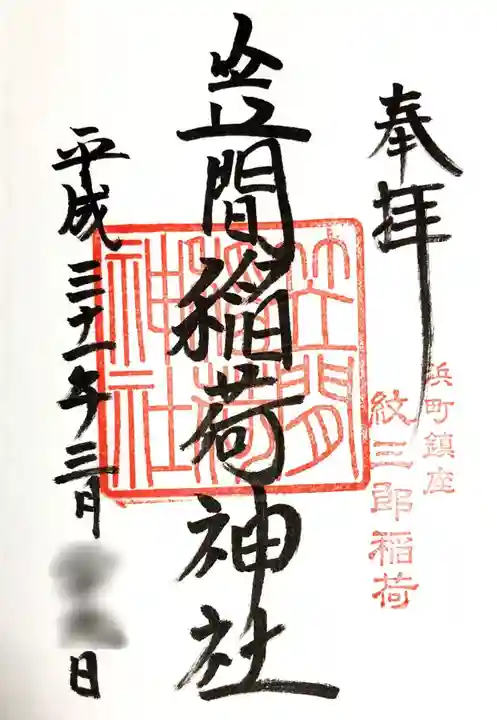 奉拝
浜町鎮座
紋三郎稲荷
笠間稲荷神社
笠間稲荷神社
平成三十一年三月
日